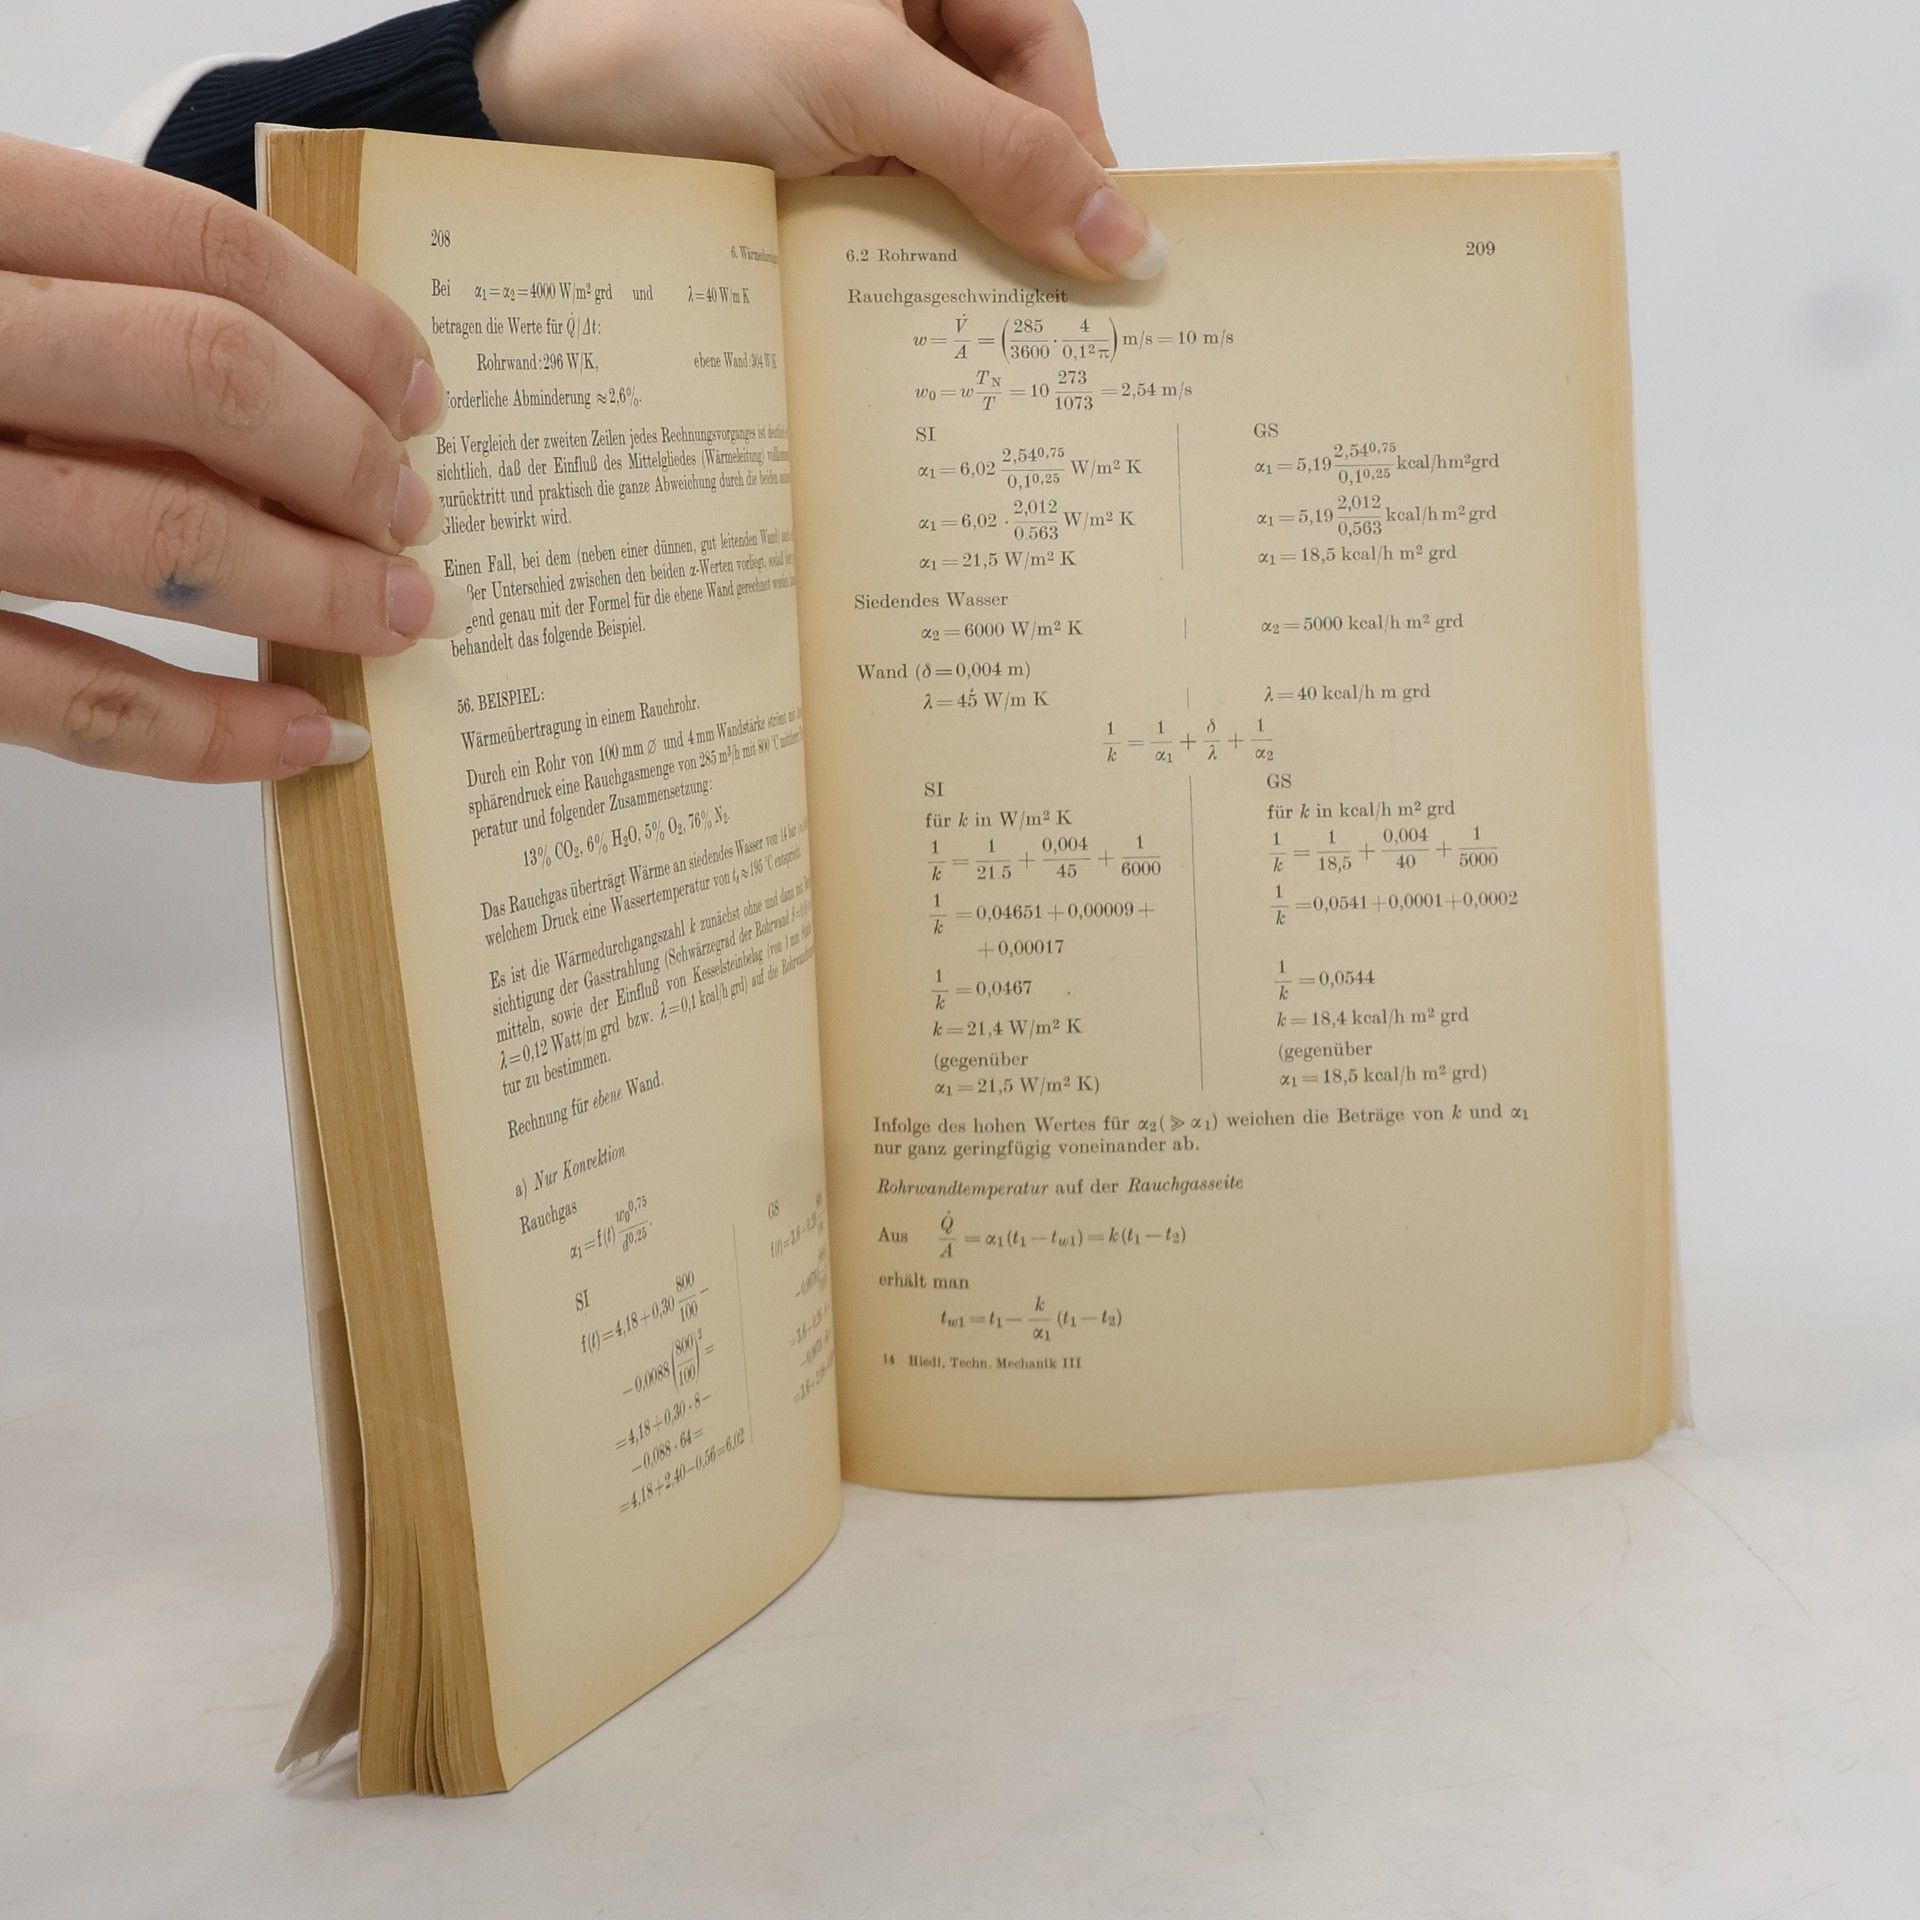 208
6.
Bei α₁=α₂=4000 W/m² grd und λ=40 W/m K
betragen die Werte für Q̇/Δt:
Rohrwand: 296 W/K, ebene Wand: 304 W/K
Abminderung ≈2,6%.
Bei Vergleich der zweiten Zeilen jedes Rechnungsvorganges ist
sichtlich, daß der Einfluß des Mittelgliedes (Wärmeleitung)
zurücktritt und praktisch die ganze Abweichung durch die beiden
Glieder bewirkt wird.
Einen Fall, bei dem (neben einer dünnen, gut leitenden Wand)
Unterschied zwischen den beiden α-Werten vorliegt,
genau mit der Formel für die ebene Wand gerechnet werden
behandelt das folgende Beispiel.
56. BEISPIEL:
Wärmeübertragung in einem Rauchrohr.
Durch ein Rohr von 100 mm ∅ und 4 mm Wandstärke strömt
sphärendruck eine Rauchgasmenge von 285 m³/h mit 800 °C
peratur und folgender Zusammensetzung:
13% CO₂, 6% H₂O, 5% O₂, 76% N₂.
Das Rauchgas überträgt Wärme an siedendes Wasser von 14 bar
welchem Druck eine Wassertemperatur von tₛ≈195 °C entspricht.
Es ist die Wärmedurchgangszahl k zunächst ohne und dann mit
sichtigung der Gasstrahlung (Schwärzegrad der Rohrwand
mitteln, sowie der Einfluß von Kesselsteinbelag (von 1 mm
λ=0,12 Watt/m grd bzw. λ=0,1 kcal/h grd) auf die
tur zu bestimmen.
Rechnung für ebene Wand.
a) Nur Konvektion
Rauchgas
α₁=f(t) w₀^0,75/d^0,25.
SI
f(t)=4,18+0,30 800/100−
−0,0088(800/100)²=
=4,18+0,30·8−
−0,088·64=
=4,18+2,40−0,56=6,02
GS
6.2 Rohrwand 209
Rauchgasgeschwindigkeit
w=V̇/A=(285/3600·4/0,1²π) m/s=10 m/s
w₀=w T_N/T=10 273/1073=2,54 m/s
SI GS
α₁=6,02 2,54^0,75/0,1^0,25 W/m² K α₁=5,19 2,54^0,75/0,1^0,25 kcal/hm²grd
α₁=6,02·2,012/0.563 W/m² K α₁=5,19 2,012/0,563 kcal/h m² grd
α₁=21,5 W/m² K α₁=18,5 kcal/h m² grd
Siedendes Wasser
α₂=6000 W/m² K α₂=5000 kcal/h m² grd
Wand (δ=0,004 m)
λ=45 W/m K λ=40 kcal/h m grd
1/k=1/α₁+δ/λ+1/α₂
SI GS
für k in W/m² K für k in kcal/h m² grd
1/k=1/21.5+0,004/45+1/6000 1/k=1/18,5+0,004/40+1/5000
1/k=0,04651+0,00009+ 1/k=0,0541+0,0001+0,0002
+0,00017
1/k=0,0467 1/k=0,0544
k=21,4 W/m² K k=18,4 kcal/h m² grd
(gegenüber (gegenüber
α₁=21,5 W/m² K) α₁=18,5 kcal/h m² grd)
Infolge des hohen Wertes für α₂(≫α₁) weichen die Beträge von k und α₁
nur ganz geringfügig voneinander ab.
Rohrwandtemperatur auf der Rauchgasseite
Aus Q̇/A=α₁(t₁−t_w1)=k(t₁−t₂)
erhält man
t_w1=t₁−k/α₁ (t₁−t₂)
14 Hiedl, Techn. Mechanik III